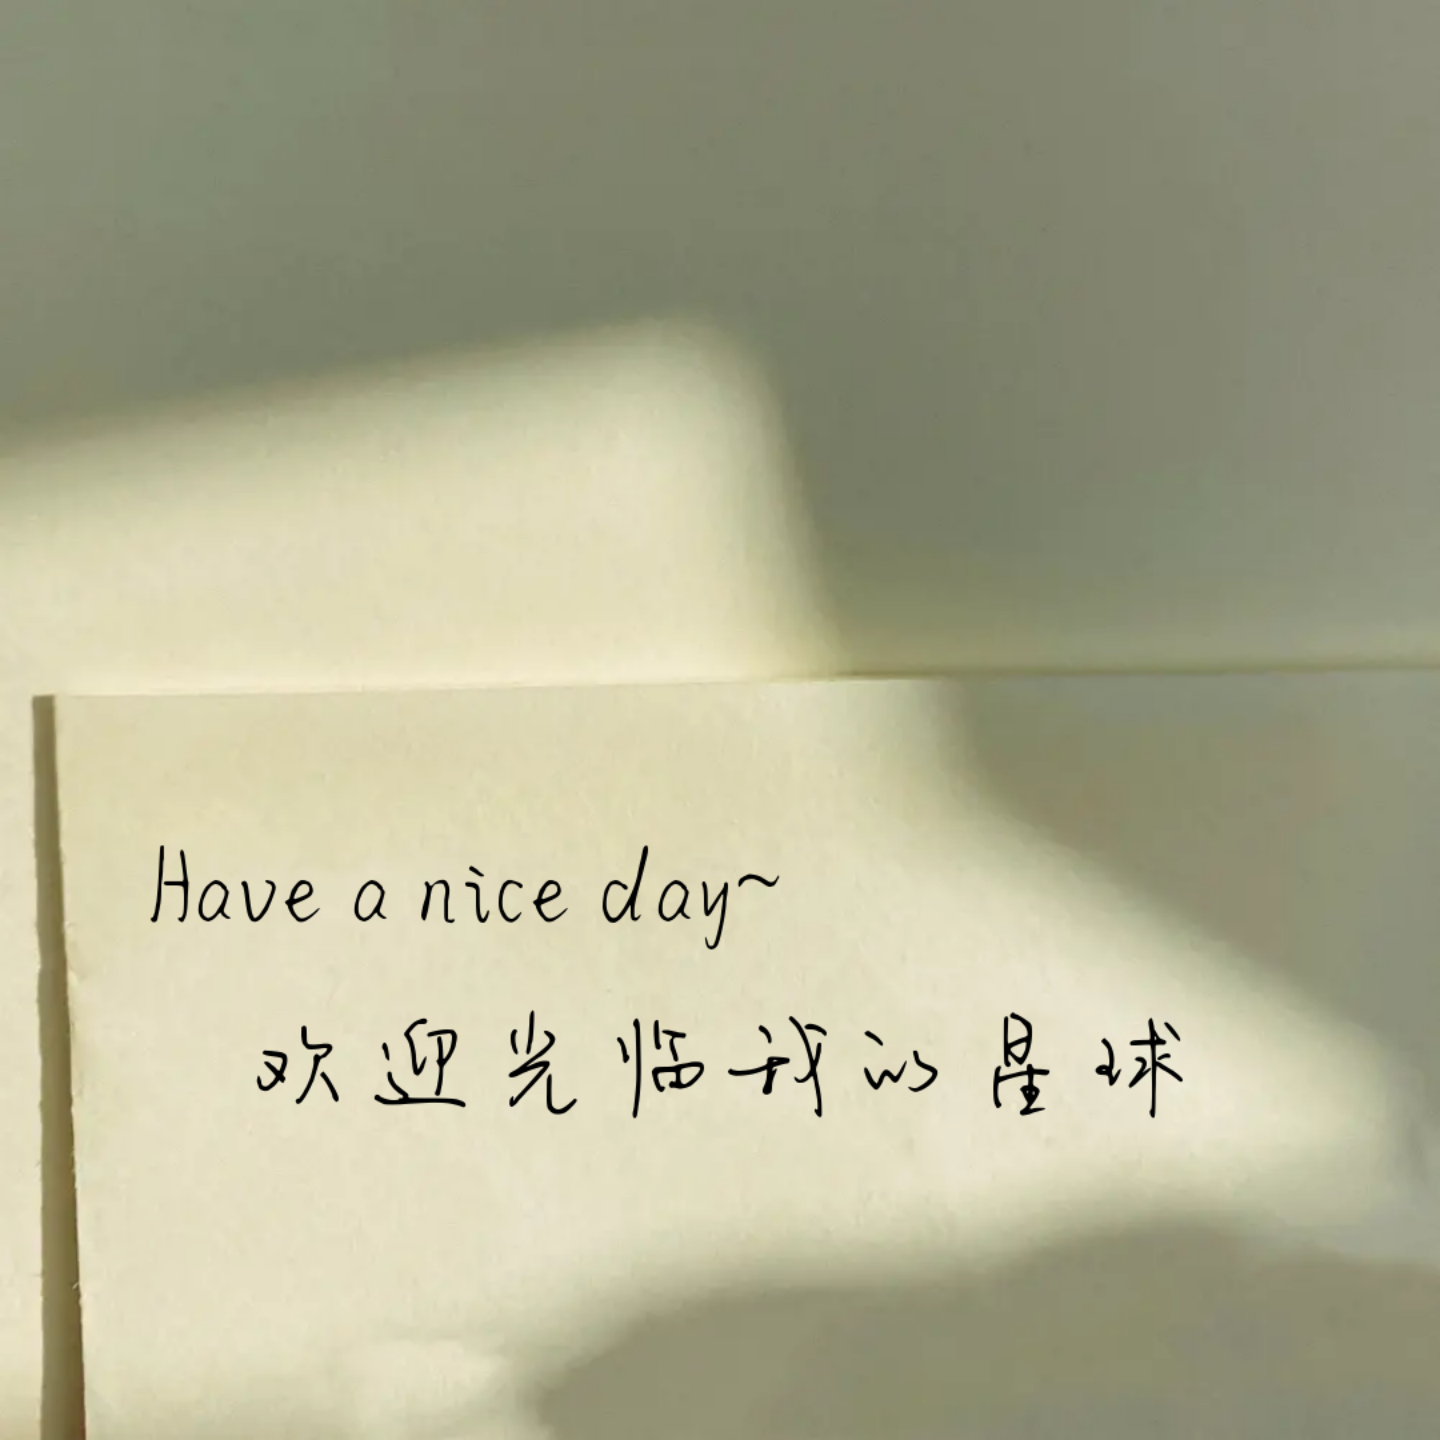 Have a nice day~
欢迎光临我的星球